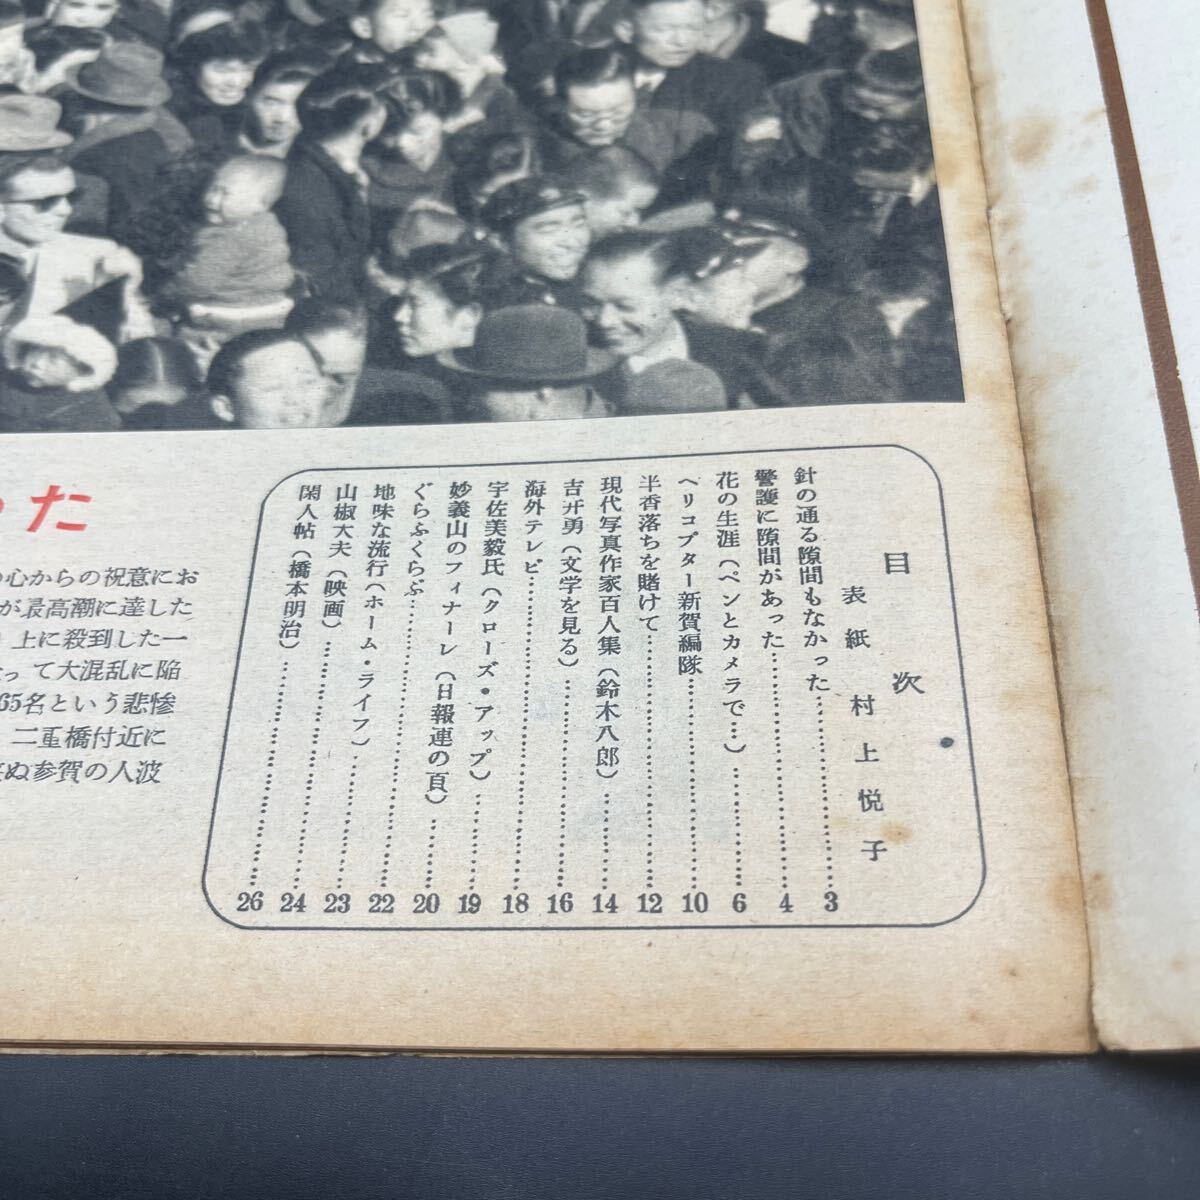 った
の心からの祝意にお
が最高潮に達した
上に殺到した一
なって大混乱に陥
65名という悲惨
二重橋付近に
ぬ参賀の人波
目次
表紙 村上悦子
針の通る隙間もなかった…………3
警護に隙間があった…………4
花の生涯(ペンとカメラで…)…………6
ヘリコプター新賀編隊…………10
半香落ちを賭けて…………12
現代写真作家百人集(鈴木八郎)…………14
吉井勇(文学を見る)…………16
海外テレビ…………18
宇佐美毅氏(クローズ・アップ)…………19
妙義山のフィナーレ(日報連の頁)…………20
ぐらふくらぶ…………22
地味な流行(ホーム・ライフ)…………23
山椒大夫(映画)…………24
閑人帖(橋本明治)…………26